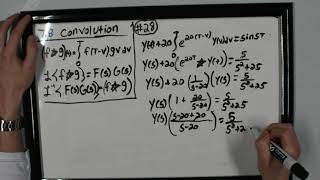 7.8 Convolution
(f*g)(t)=∫f(T-v)g v dv
£{f*g}=F(s)G(s)
£⁻¹{F(s)G(s)}=f*g
#28
Y(t)+20∫e^20(T-V) Y(v)dv=sin5T
Y(t)+20(e^20T * Y(t))=5/(s²+25)
Y(s)+20(1/(s-20))Y(s)=5/(s²+25)
Y(s)(1+20/(s-20))=5/(s²+25)
Y(s)((s-20+20)/(s-20))=5/(s²+2